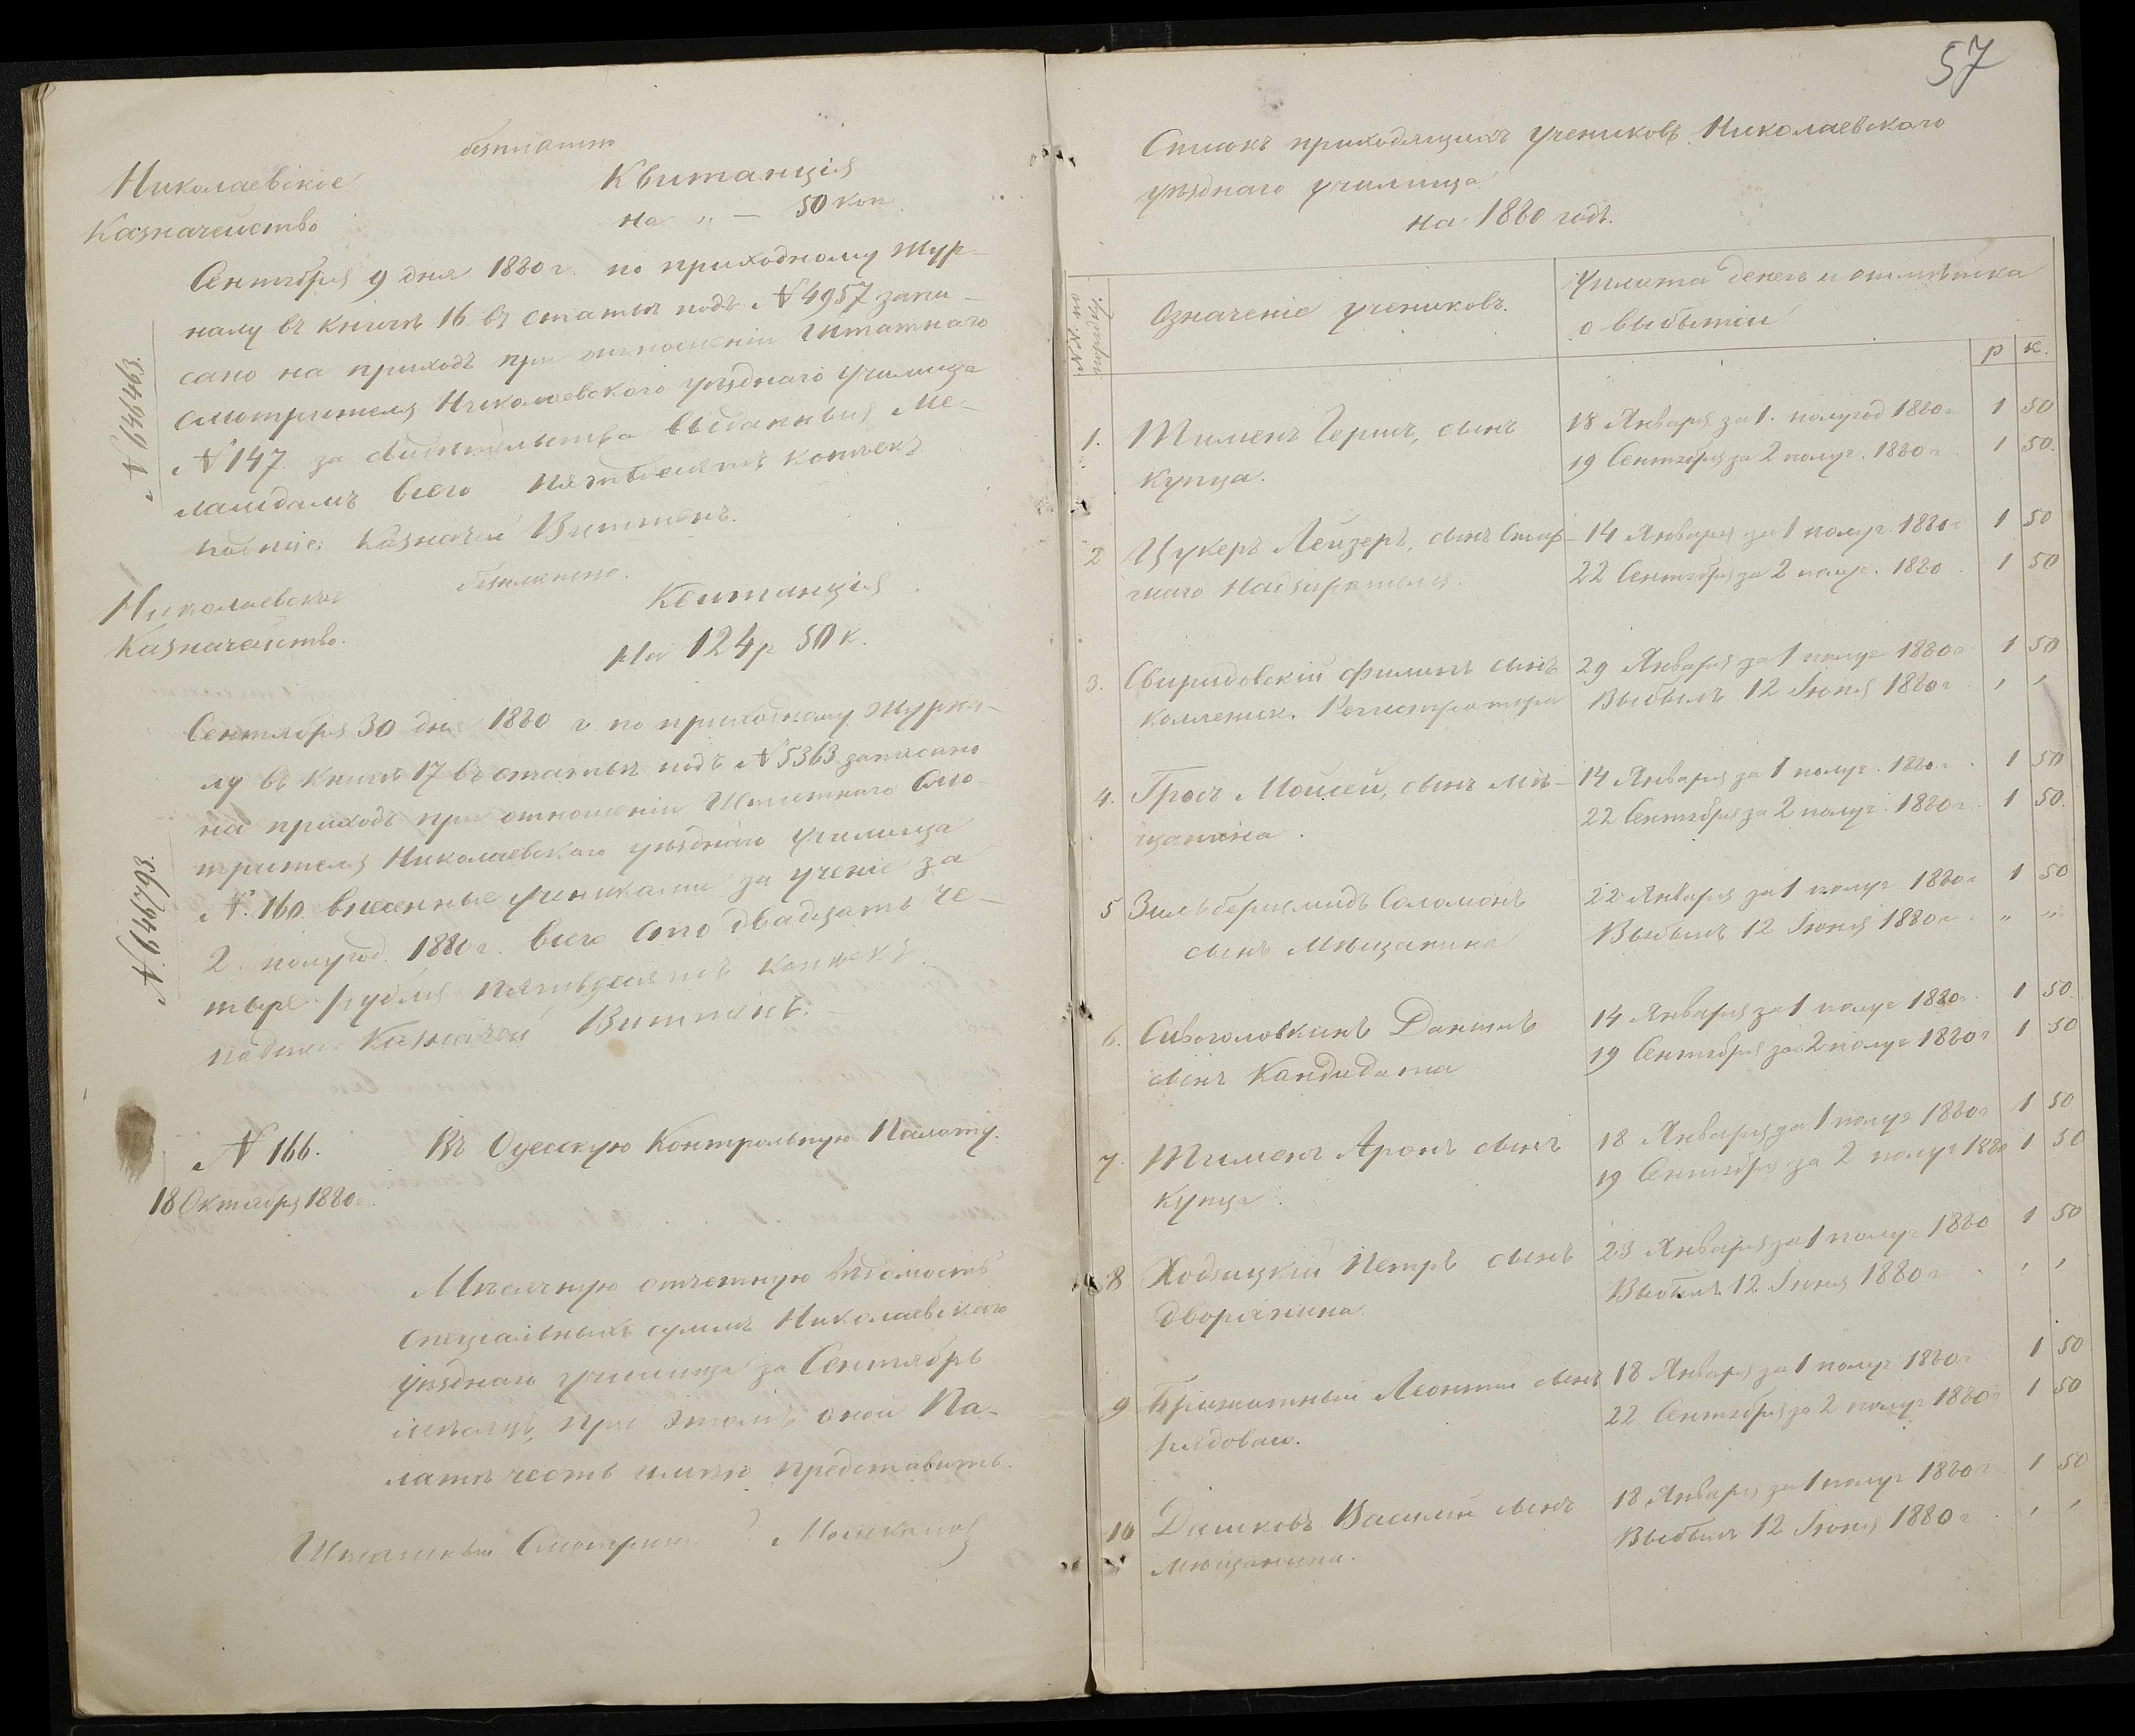 безплатно
Николаевское
Казначейство
Квитанція
на „ — 50 коп.
Сентября 9 дня 1880 г. по приходному жур-
налу въ книгѣ 16 въ статьѣ подъ № 4957 запи-
сано на приходъ при отношеніи штатнаго
смотрителя Николаевскаго уѣзднаго училища
№ 147 за свидѣтельства выданныя Ме-
ламдамъ всего пятьдесятъ копѣекъ
подпис: Казначей Виттенъ.
№ 149463
безплатно.
Николаевское
Казначейство.
Квитанція
На 124 р 50 к.
Сентября 30 дня 1880 г. по приходному журна-
лу въ книгѣ 17 въ статьѣ подъ № 5363 записано
на приходъ при отношеніи Штатнаго Смо-
трителя Николаевскаго уѣзднаго училища
№ 160 внесенные учениками за ученіе за
2 полугод. 1880 г. всего Сто двадцать че-
тыре рубля пятьдесятъ копѣекъ.
подпис. Казначей Виттенъ.
№ 149793
№ 166.
Въ Одесскую Контрольную Палату.
18 Октября 1880 г.
Мѣсячную отчетную вѣдомость
спеціальныхъ суммъ Николаевскаго
уѣзднаго училища за Сентябрь
мѣсяцъ, при этомъ оной Па-
латѣ честь имѣю представить.
Штатный Смотрит.
57
Списокъ приходящихъ учениковъ Николаевскаго
уѣзднаго училища
на 1880 годъ.
Означеніе учениковъ.
Уплата денегъ и отмѣтка
о выбытіи
р к.
1. Тименъ Гершъ, сынъ 18 Января за 1. полугод 1880 г. 1 50
купца. 19 Сентября за 2 полуг. 1880 г. 1 50.
2 Цукеръ Лейзеръ, сынъ Стар- 14 Января за 1 полуг. 1880 г 1 50
шаго Надзирателя. 22 Сентября за 2 полуг. 1880 1 50
3. Свиридовскій Филипъ сынъ 29 Января за 1 полуг 1880 г 1 50
коллежск. Регистратора Выбылъ 12 Іюня 1880 г. , ,
4. Гросъ Моисей, сынъ мѣ- 14 Января за 1 полуг. 1880 г. 1 50
щанина. 22 Сентября за 2 полуг. 1880 г. 1 50.
5 Зильбершмидъ Соломонъ 22 Января за 1 полуг 1880 г 1 50
сынъ мѣщанина Выбылъ 12 Іюня 1880 г. „ „
6. Сивоголовкинъ Даніилъ 14 Января за 1 полуг 1880 г. 1 50.
сынъ Кандидата 19 Сентября за 2 полуг 1880 г 1 50
7. Тименъ Аронъ сынъ 18 Января за 1 полуг 1880 г 1 50
купца. 19 Сентября за 2 полуг 1880 1 50
8 Ходзицкій Петръ сынъ 23 Января за 1 полуг 1880 1 50
дворянина. Выбылъ 12 Іюня 1880 г. , ,
9 Леонтій сынъ 18 Января за 1 полуг 1880 г. 1 50
рядоваго. 22 Сентября за 2 полуг 1880 г 1 50
10 Дашковъ Василій сынъ 18 Января за 1 полуг 1880 г. 1 50
мѣщанина. Выбылъ 12 Іюня 1880 г. , ,